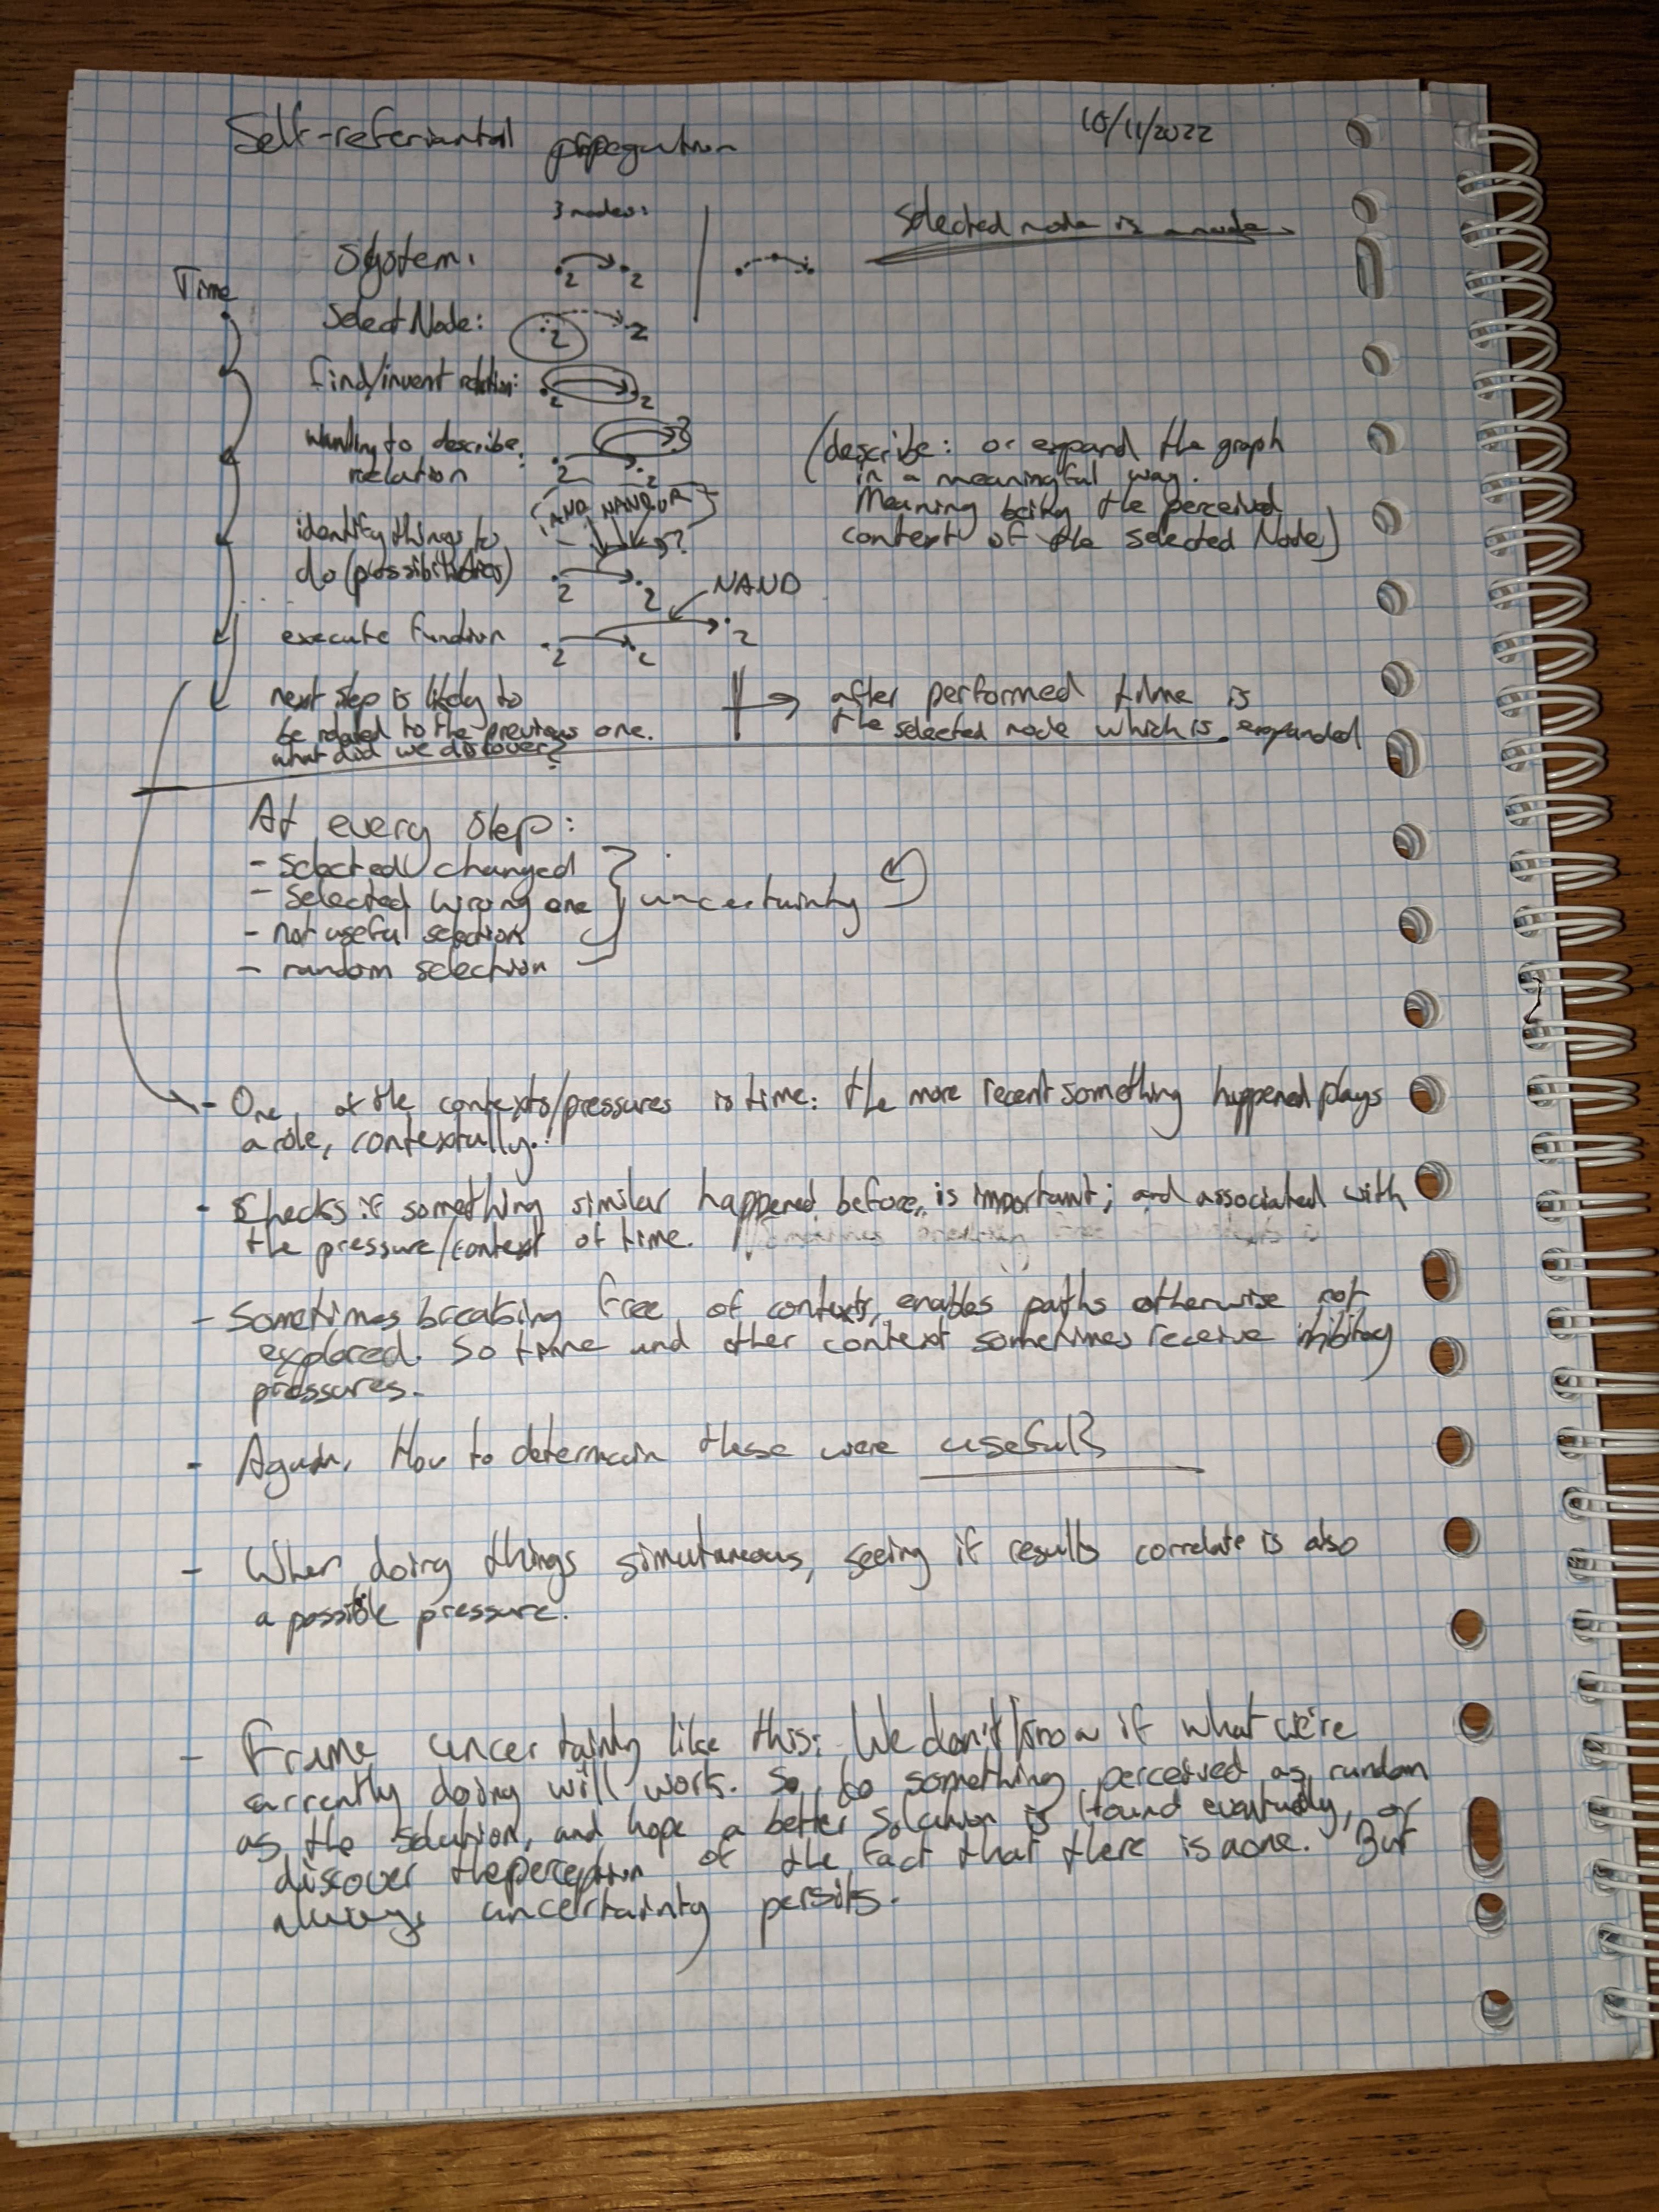 Self-referiantal propegation 10/11/2022
3 nodes:
System:
2 2
selected node is a node.
Time
Select Node:
2 2
find/invent relation:
2 2
wanting to describe
relation
?
2 2
(describe: or expand the graph
in a meaningful way.
Meaning being the perceived
context of the selected Node)
identify things to
do (possibilities)
{AND, NAND, OR}
?
2 2
NAND
execute function
2 2 2
next step is likely to
be related to the previous one.
what did we discover?
after performed time is
the selected node which is expanded
At every step:
- selected changed
- selected wrong one
- not useful selection
- random selection
uncertainty
- One, of the contexts/pressures is time: the more recent something happened plays
a role, contextully.
- Checks if something similar happened before, is important; and associated with
the pressure/context of time.
- Sometimes breaking free of contexts, enables paths otherwise not
explored. So time and other context sometimes receive inhibitory
pressures.
- Again, How to determain these were useful?
- When doing things simutaneous, seeing if results correlate is also
a possible pressure.
- Frame uncertainty like this: We don't know if what we're
currently doing will work. So, do something perceived as random
as the solution, and hope a better solution is found eventually, or
discover the perception of the fact that there is none. But
always uncertainty persits.